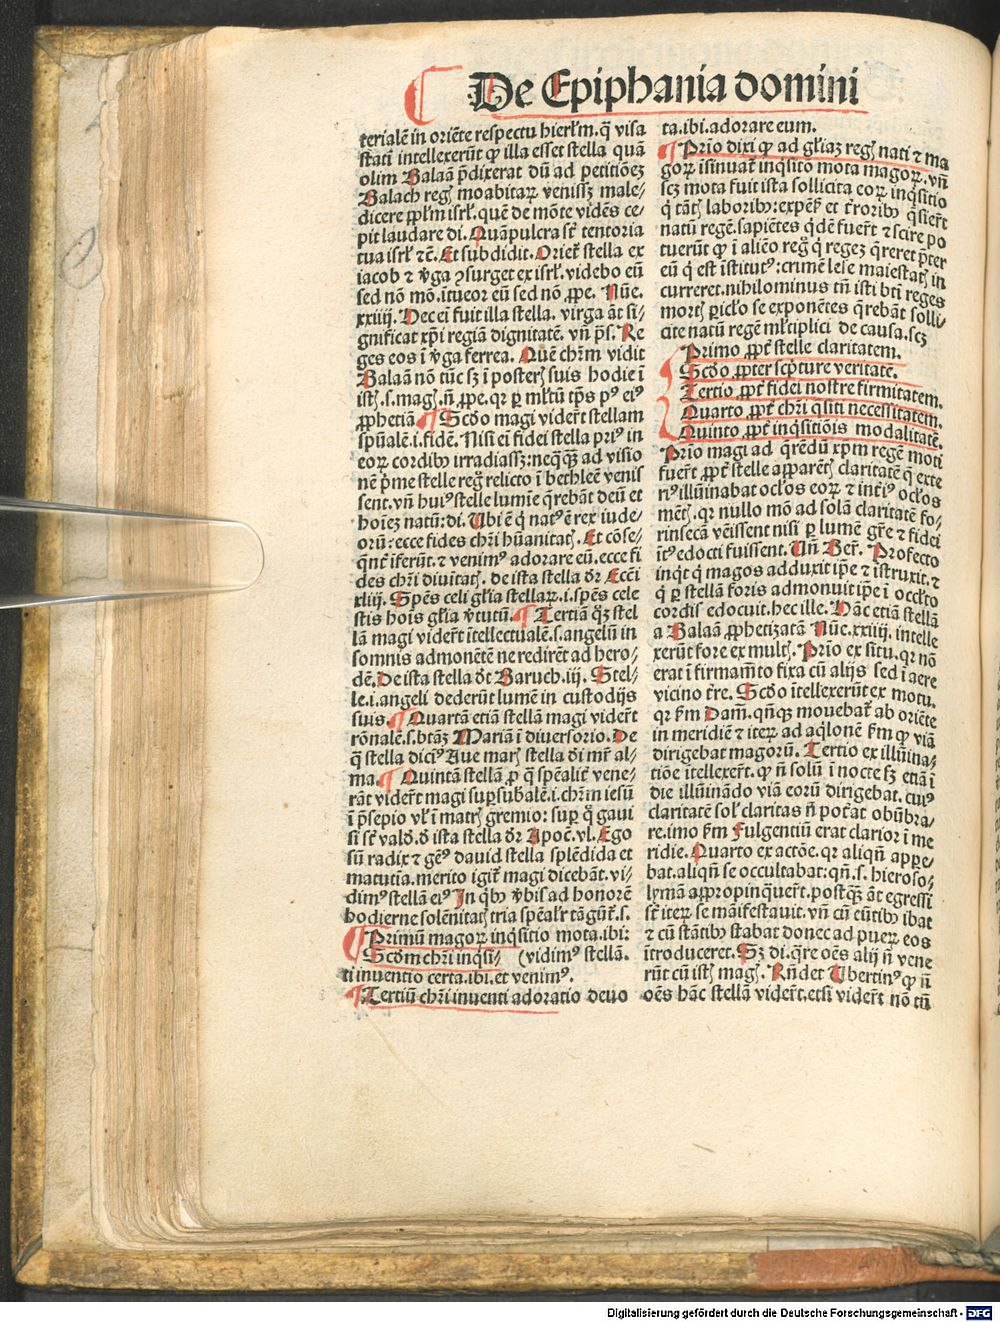 De Epiphania domini
terialē in oriēte respectu hierl'm. q̄ visa
stati intellexerūt ꝙ illa esset stella quā
olim Balaā p̄dixerat dū ad petitiōeꝫ
Balach regꝭ moabitaꝝ venissꝫ male⸗
dicere ppl'm isrl'. quē de mōte vidēs ce⸗
pit laudare di. Quā pulcra sūt tentoria
tua isrl' ⁊c̄. Et subdidit. Orieť stella ex
iacob ⁊ v̄ga ꝯsurget ex isrl'. videbo eū
sed nō mō. ītueor eū sed nō ꝓpe. Nūe.
xxiiij. Dec ei fuit illa stella. virga āt si⸗
gnificat xp̄i regiā dignitatē. vn̄ p̄s. Re
ges eos ī v̄ga ferrea. Quē chr̄m vidit
Balaā nō tūc sꝫ ī posterꝭ suis hodie ī
istꝭ .s. magꝭ. n̄ ꝓpe. qꝛ ꝑ ml'tū tp̄s pꝰ eiꝰ
ꝓphetiā. ¶ Scd̄o magi vider̄t stellam
spūalē .i. fidē. Nisi ei fidei stella priꝰ in
eoꝝ cordibꝫ irradiassꝫ: neqꝫqꝫ ad visio
nē p̄me stelle regꝭ relicto ī bethleē venis
sent. vn̄ huiꝰ stelle lumīe q̄rebāt deū et
hoīeꝫ natū: di. Ubi ē q̇ natꝰ ē rex iude⸗
orū: ecce fides chr̄i hūanitatꝭ. Et cōse⸗
qn̄t īferūt. ⁊ venimꝰ adorare eū. ecce fi
des chr̄i diuītatꝭ. de ista stella dr̄ Eccī
xliij. Spēs celi gl'ia stellaꝝ. i. spēs cele
stis hoīs gl'ia v̄tutū. ¶ Tertiā qꝫ stel
lā magi vider̄t ītellectualē. s. angelū in
somnis admonētē ne redirēt ad hero⸗
dē. De ista stella dt̄ Baruch. iij. Stel⸗
le. i. angeli dederūt lumē in custodijs
suis. ¶ Quartā etiā stellā magi vider̄t
rōnalē. s. btāꝫ Mariā ī diuersorio. De
q̄ stella dicit' Aue marꝭ stella di mr̄ al⸗
ma. ¶ Quintā stellā ꝓ q̄ spēalit' vene⸗
rāt vider̄t magi suꝑsub'alē. i. chr̄m iesū
ī p̄sepio vl' ī matrꝭ gremio: suꝑ q̇ gaui
si sūt vald. d ista stella dr̄ Apoc̄. vl. Ego
sū radix ⁊ gēꝰ dauid stella splēdida et
matutīa. merito igit' magi dicebāt. vi⸗
dimꝰ stellā eiꝰ In qꝫ v̄bis ad honorē
hodierne solēnitatꝭ tria spēal'r tāgūt'. s.
¶ Primū magoꝝ inqsitio mota. ibi:
Scd̄m chr̄i inqsi⸗ (vidimꝰ stellā.
ti inuentio certa. ibi. et venimꝰ.
¶ Tertiū chr̄i inuenti adoratio deuo
ta. ibi. adorare eum.
¶ Prīo dixi ꝙ ad gl'iaꝫ regꝭ nati ⁊ ma
goꝝ īsinuat' inqsitō mota magoꝝ. vn̄
scꝫ mota fuit ista sollicita eoꝝ inqsitio
q̇ tātꝭ laboribꝫ: expēꝭ et tr̄roribꝫ q̄sier̄t
natū regē. sapiētes q̇dē fuer̄t ⁊ scire po
tuerūt ꝙ ī aliēo regꝭ q̇ regeꝫ q̄reret p̄ter
eū q̇ est īstitutꝰ: crimē lese maiestatꝭ in
curreret. nihilominus tn̄ isti bt̄i reges
mortꝭ ꝑicl'o se exponētes q̄rebāt solli⸗
cite natū regē ml'tiplici de causa. scꝫ
Primo ꝓpt' stelle claritatem.
Scd̄o ꝓpter scpture veritatē.
Tertio ꝓpt' fidei nostre firmitatem.
Quarto ꝓpt' chr̄i q̄siti necessitatem.
Quinto ꝓpt' inqsitiōis modalitatē.
Prīo magi ad q̄rēdū xp̄m regē moti
fuer̄t ꝓpt' stelle apparētꝭ claritatē q̄ exte
riꝰ illūinabat ocl'os eoꝝ ⁊ int'iꝰ ocl'os
mētꝭ. qꝛ nullo mō ad solā claritatē fo⸗
rinsecā vēissent nisi ꝑ lumē gr̄e ⁊ fidei
īt'ꝰ edocti fuissent. Un̄ Ber̄. Profecto
inqt q̇ magos adduxit ip̄e ⁊ īstruxit. ⁊
q̇ ꝑ stellā foris admonuit ip̄e ī occl'to
cordis edocuit. hec ille. Dāc etiā stellā
a Balaā ꝓphetizatā Nūe. xxiiij. intelle
xerūt fore ex multꝭ. Prīo ex situ. qꝛ nō
erat ī firmam̄to fixa cū alijs sed ī aere
vicino tr̄re. Scd̄o ītellexerūt ex motu.
qꝛ fm̄ Dam̄. qn̄qꝫ mouebat' ab oriēte
in meridiē ⁊ iteꝝ ad aqlonē fm̄ ꝙ viā
dirigebat magorū. Tertio ex illūina⸗
tiōe ītellexer̄t. ꝙ n̄ solū ī nocte sꝫ etiā ī
die illūinādo viā eorū dirigebat. cuiꝰ
claritatē sol' claritas n̄ pot'at obūbra⸗
re. imo fm̄ Fulgentiū erat clarior ī me
ridie. Quarto ex actōe. qꝛ aliqn̄ appe⸗
bat. aliqn̄ se occultabat: qn̄. s. hieroso⸗
lymā appropinquer̄t. postqꝫ āt egressi
sūt iteꝝ se manifestauit. vn̄ cū eūtibꝫ ibat
⁊ cū stātibꝫ stabat donec ad pueꝝ eos
ītroduceret. Sꝫ di. q̄re oēs alij n̄ vene
rūt cū istꝭ magꝭ. Rn̄det Ubertinꝰ ꝙ n̄
oēs hāc stellā vider̄t. etsi vider̄t nō tn̄
Digitalisierung gefördert durch die Deutsche Forschungsgemeinschaft - DFG